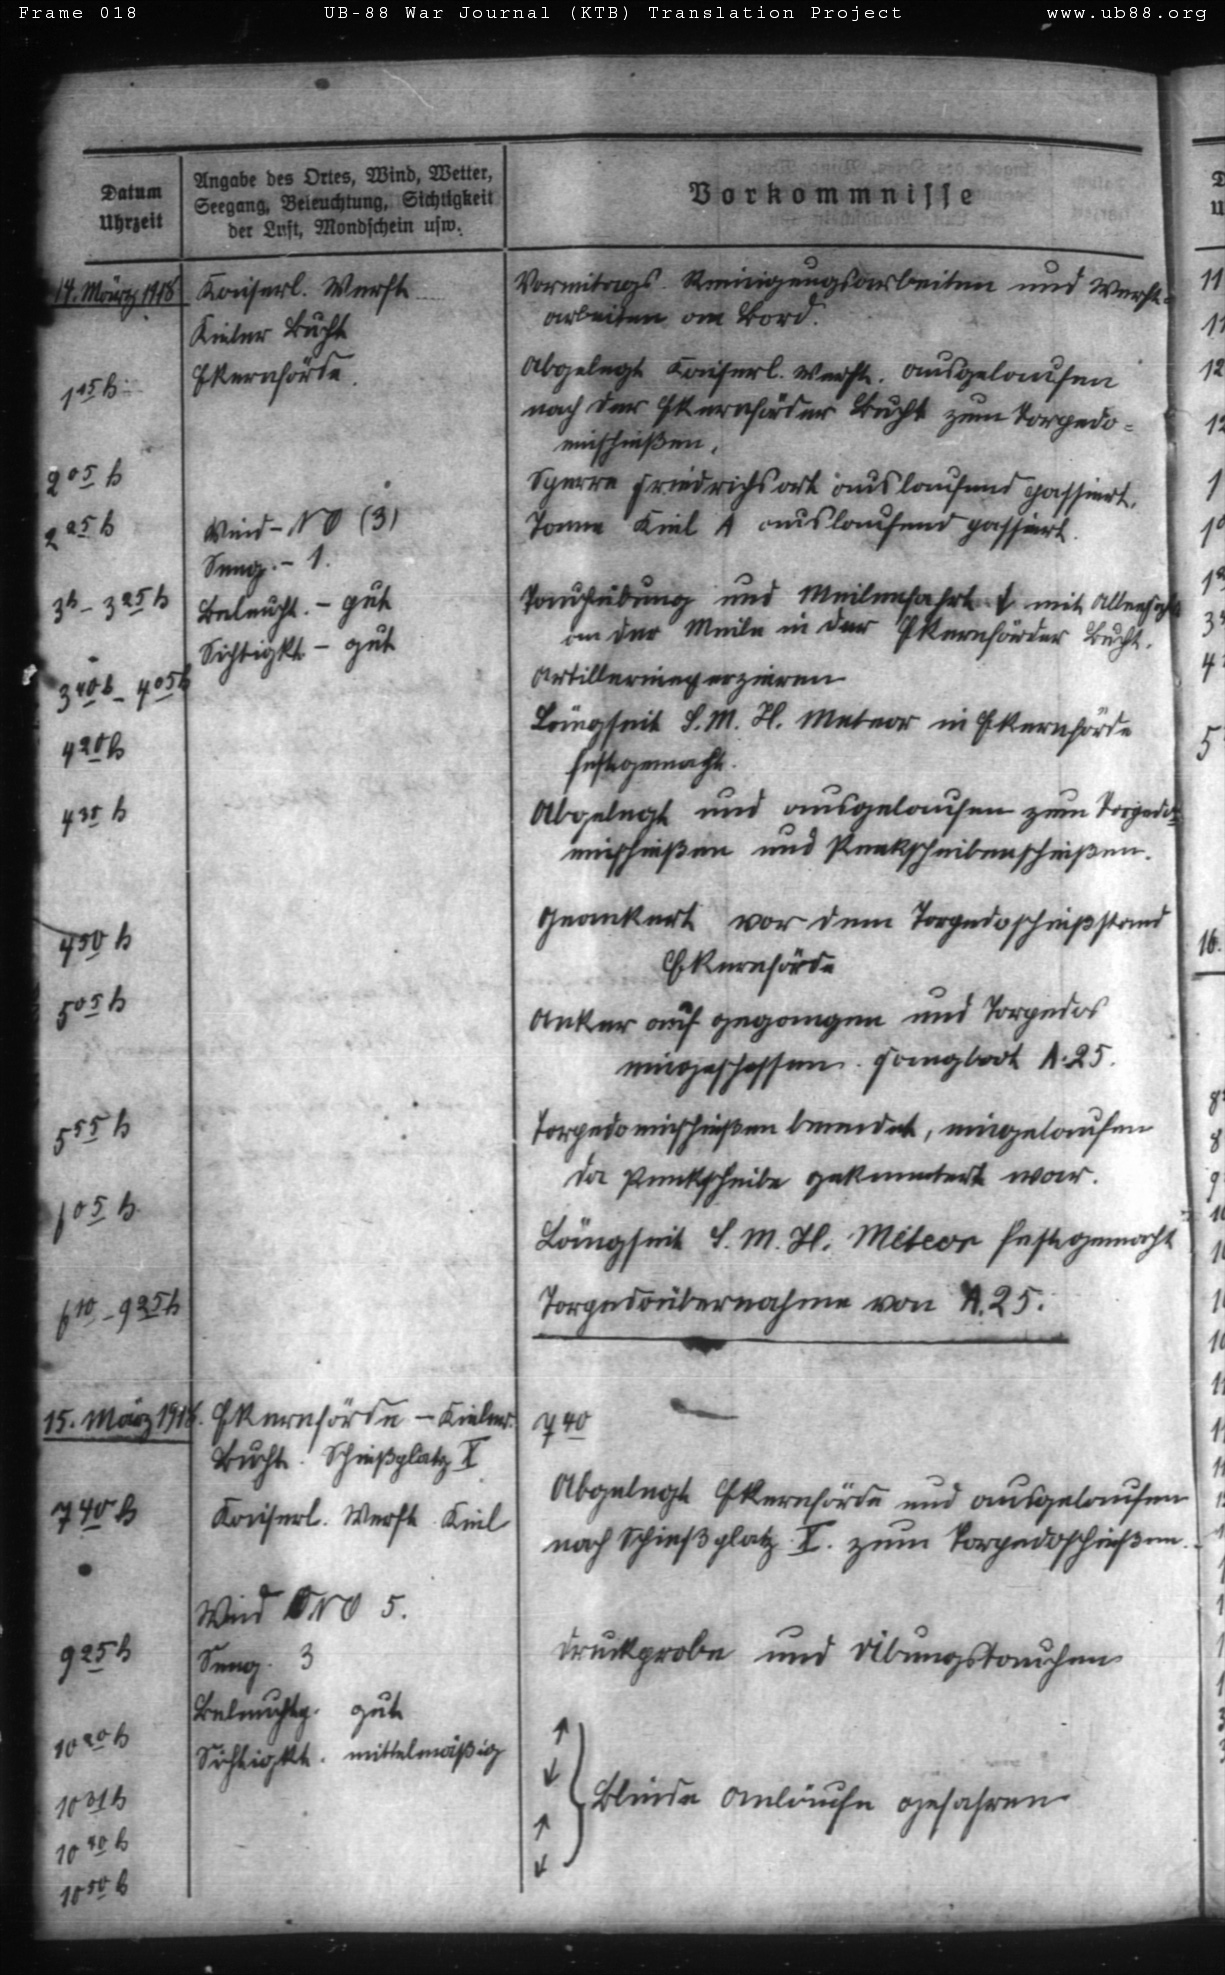 Frame 018 UB-88 War Journal (KTB) Translation Project www.ub88.org
Datum
Uhrzeit
Angabe des Ortes, Wind, Wetter,
Seegang, Beleuchtung, Sichtigkeit
der Luft, Mondschein usw.
Vorkommnisse
14. März 1918 Kaiserl. Werft Vormittags Reinigungsarbeiten und Werft-
Kieler Bucht arbeiten an Bord.
1 15 h Ekernförde. Abgelegt Kaiserl. Werft. ausgelaufen
nach der Ekernförder Bucht zum Torpedo-
einschießen.
2 05 h Sperre Friedrichsort auslaufend passiert.
2 25 h Wind - NO (3) Tonne Kiel A auslaufend passiert.
Seeg. - 1.
3h - 3 25 h Beleucht. - gut Tauchübung und Meilenfahrt mit
Sichtigkt - gut an der Meile in der Ekernförder Bucht.
3 40 h - 4 05 h Artillerieexerzieren
4 20 h Längseit S.M.H. Meteor in Ekernförde
festgemacht.
4 35 h Abgelegt und ausgelaufen zum Torpedo-
einschießen und Penkscheibenschießen.
4 50 h Geankert vor dem Torpedoschießstand
Ekernförde
5 05 h Anker auf gegangen und Torpedos
eingeschossen. Fangboot A.25.
5 55 h Torpedoeinschießen beendet, eingelaufen
da Penkscheibe gekentert war.
6 05 h Längseit S.M.H. Meteor festgemacht
6 10 - 9 25 h Torpedoübernahme von A.25.
15. März 1918. Ekernförde - Kieler 7 40
Bucht. Schießplatz X
7 40 h Kaiserl. Werft Kiel Abgelegt Ekernförde und ausgelaufen
nach Schießplatz X. zum Torpedoschießen.
Wind ONO 5.
9 25 h Seeg. 3 Druckprobe und Übungstauchen
Beleuchtg. gut
10 20 h Sichtigkt. mittelmäßig ↑
10 31 h ↓ Blinde Anläufe gefahren
10 40 h ↑
10 50 h ↓